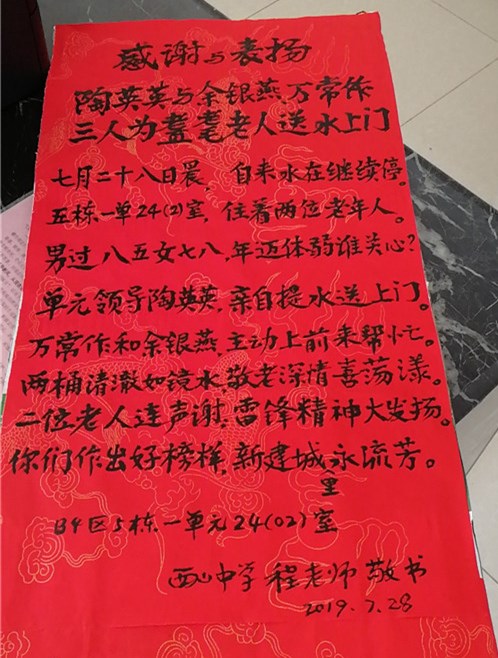 感谢与表扬
陶英英与余银燕万常作
三人为耄耋老人送水上门
七月二十八日晨，自来水在继续停。
五栋一单24(2)室，住着两位老年人。
男过八五女七八，年迈体弱谁关心？
单元领导陶英英，亲自提水送上门。
万常作和余银燕，主动上前来帮忙。
两桶清澈如镜水敬老深情喜荡漾。
二位老人连声谢，雷锋精神大发扬。
你们作出好榜样，新建城里永流芳。
B4区5栋一单元24(02)室
西山中学 程老师 敬书
2019.7.28